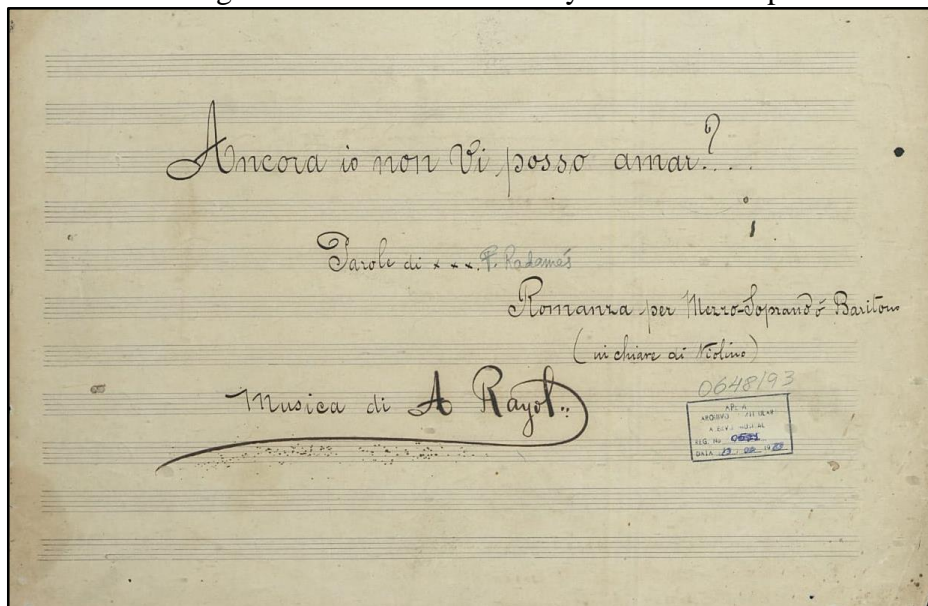 Ancora io non Vi posso amar?...
Parole di x x x. P. Radamés
Romanza per Mezzo-Soprano ó Baritono
(in chiave di Violino)
Musica di A Rayol
0648/93
REG. No
DATA